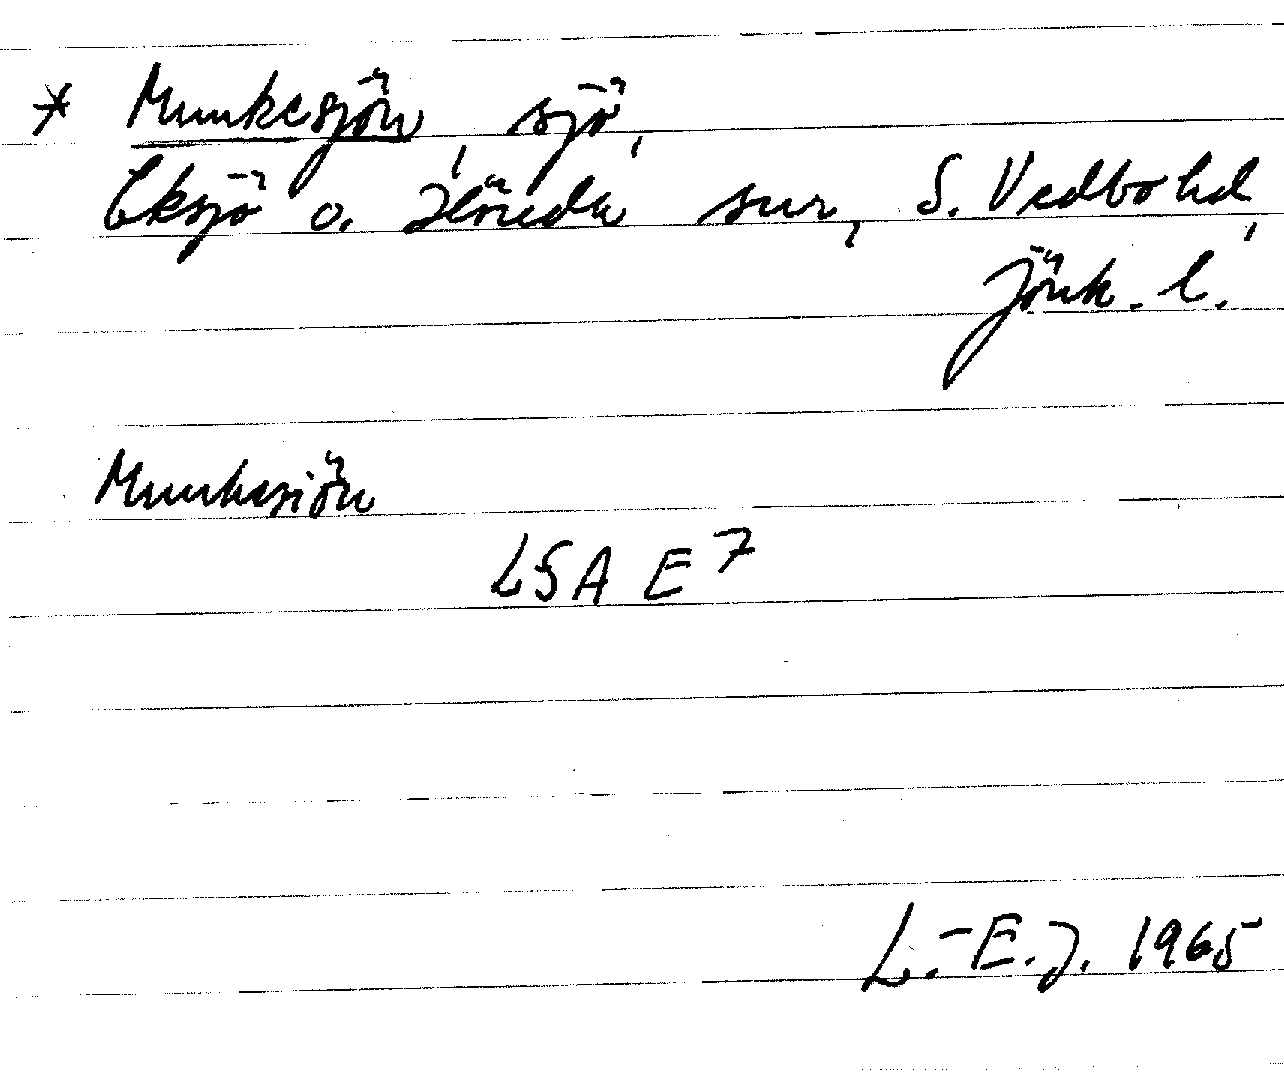 * Munkesjön, sjö,
Eksjö o. Höreda snr, S. Vedbo hd,
Jönk. l.
Munkasiön
LSA E7
L.-E. J. 1965